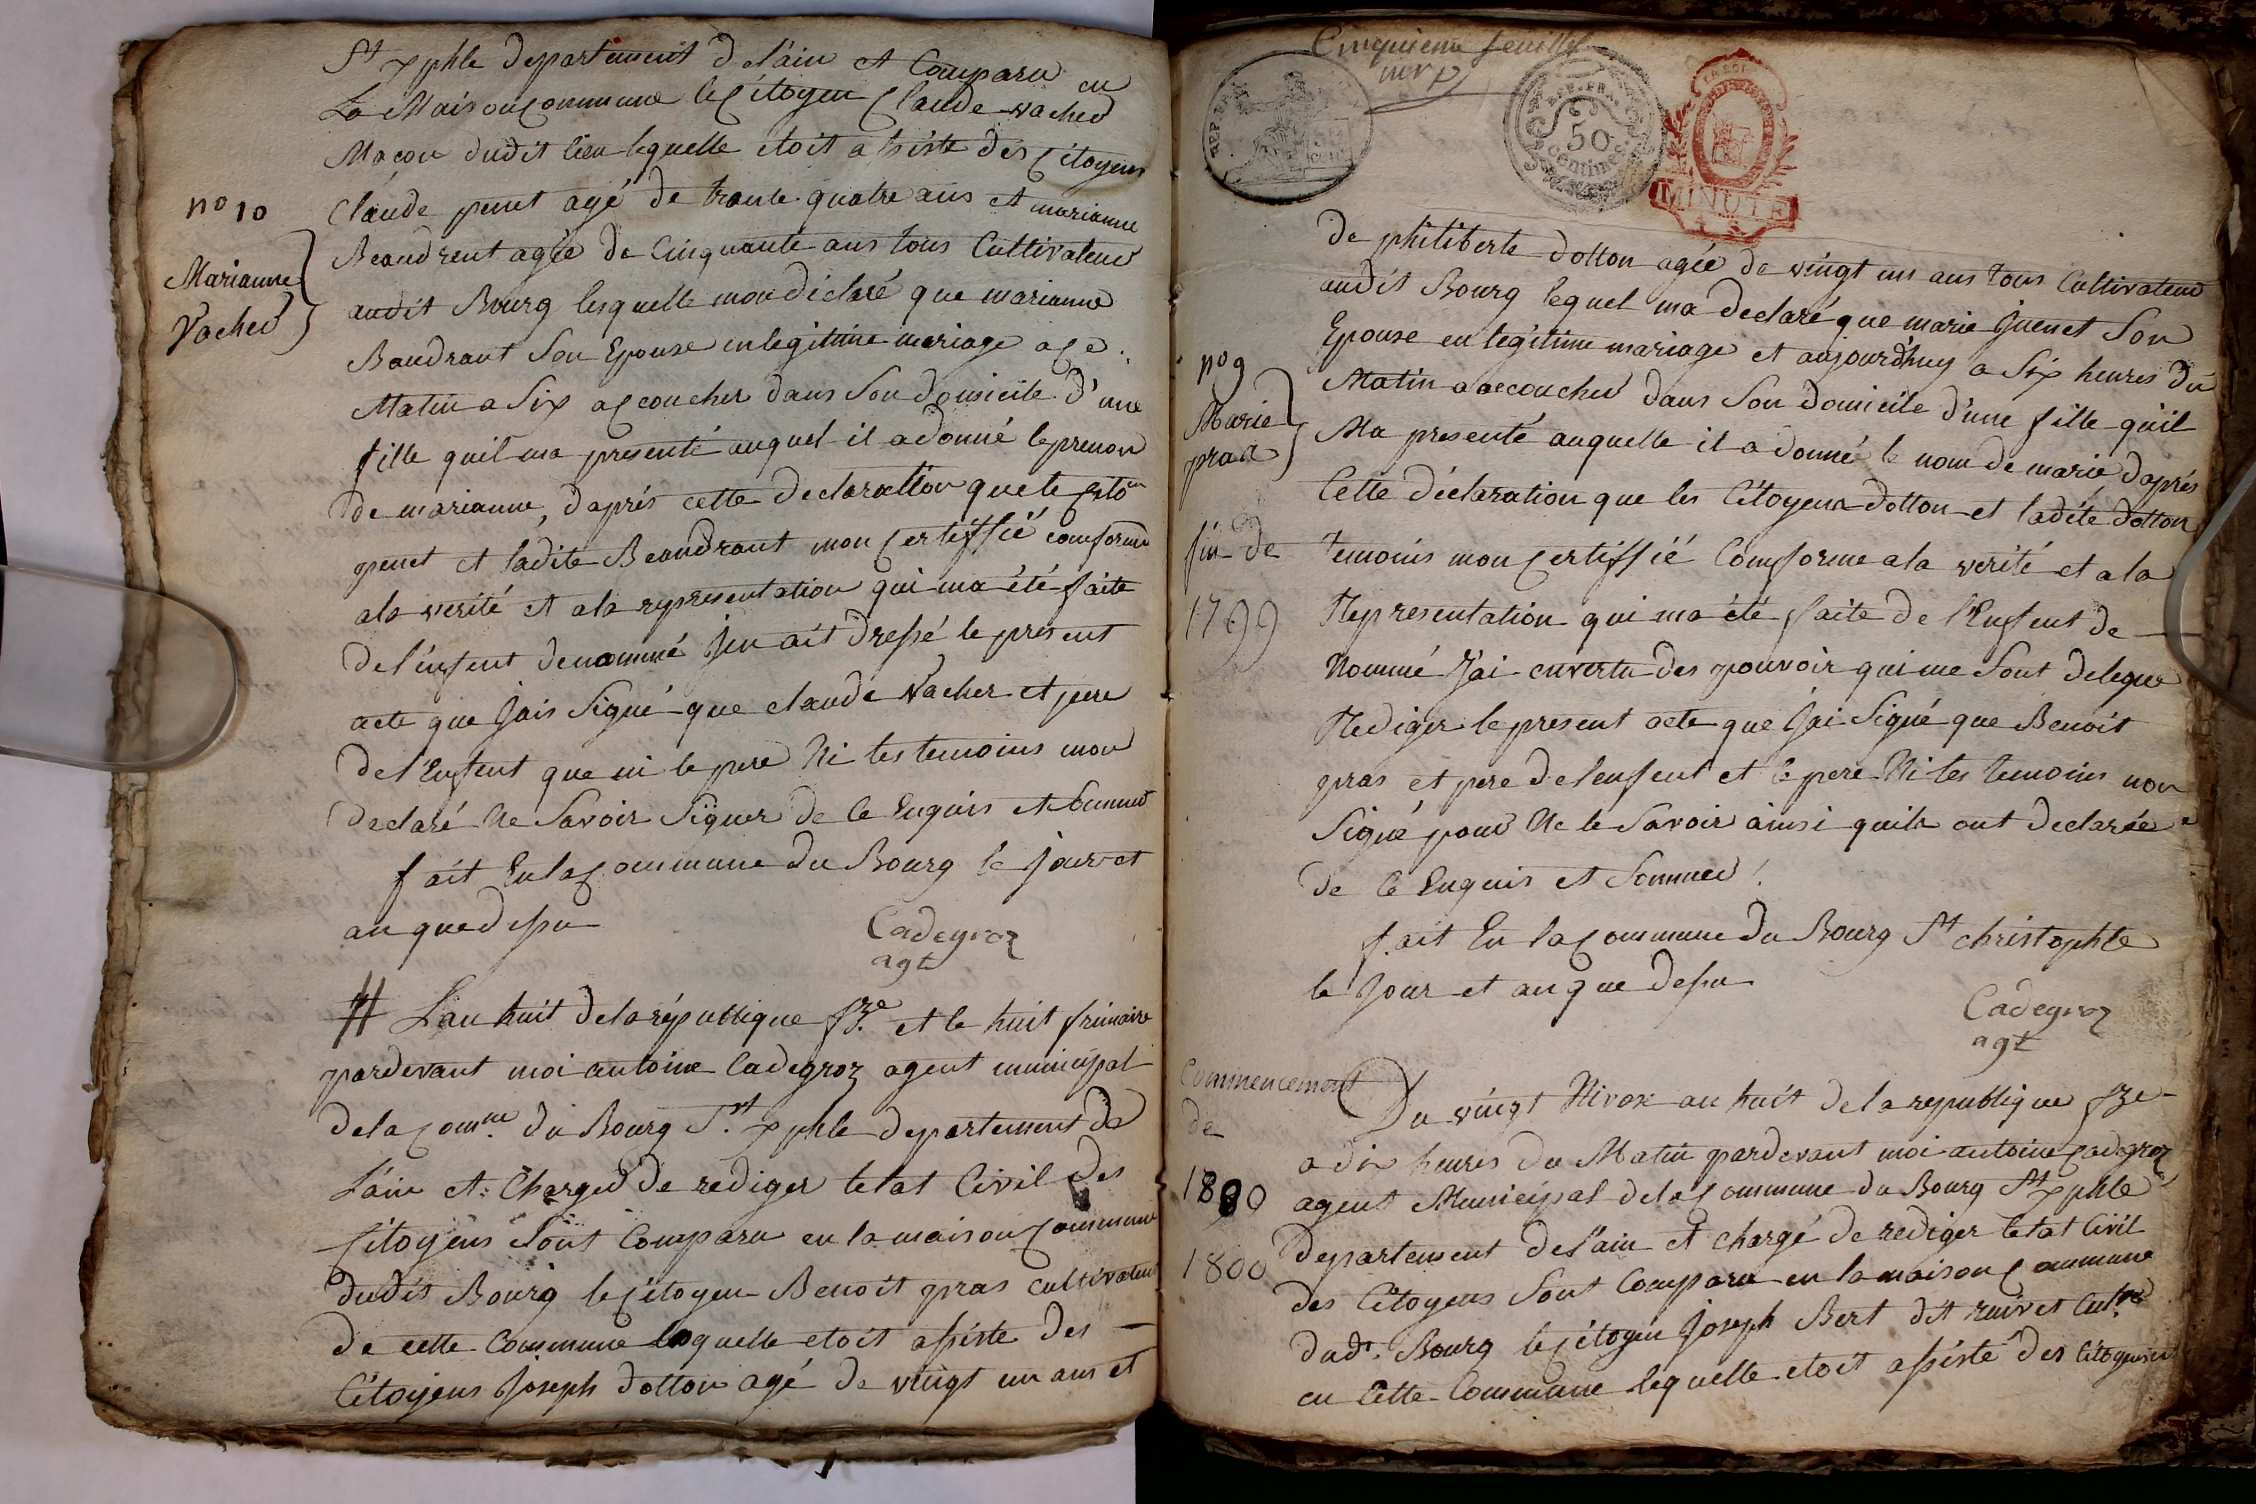 St xphle departement de l'ain et Comparu en
La Maison Commune le Citoyen Claude vacher
Maçon dudit lieu lequelle étoit assiste des Citoyens
no 10
Claude penet agé de trante quatre ans et marianne
Marianne
Vacher
Beaudrent agée de Cinquante ans tous Cultivateur
audit Bourg lesquelle mon déclaré que marianne
Baudrant Son Epouse en legitime mariage a ce
Matin a Six accoucher dans Son domicile d'une
fille quil ma presenté auquel il a donné le prenom
de marianne, d'aprés cette declaration que le Citoen
penet et ladite Beaudrant mon Certiffié conforme
ala verité et ala representation qui ma été faite
de l'enfent denommé Jen ait dressé le present
acte que Jais Signé que claude Vacher et pere
de l'Enfent que ni le pere Ni les temoins mon
declaré Ne Savoir Signer de Ce Enquis et Sommer
fait En la Commune du Bourg le Jour et
an que dessu
Cadegroz
agt
# L'an huit de la république fze et le huit frimaire
pardevant moi antoine Cadegroz agent municipal
de la Comme du Bourg St xphle departement de
L'ain et Charger de rediger letat Civil des
Citoyens Sont Comparu en la maison Commune
dudit Bourg le Citoyen Benoit pras cultivateur
de cette Commune lequelle etoit assiste des
Citoyens Joseph dotton agé de vingt un ans et
Cinquieme feuillet
REP. FRA.
50
centimes
MINUTE
de philiberte dotton agée de vingt un ans tous Cultivateur
audit Bourg lequel ma declaré que marie Juenet Son
Epouse en legitime mariage et aujourd'huy a Six heures du
no 9
Matin a accoucher dans Son domicile d'une fille quil
Marie
pras
Ma presenté auquelle il a donné le nom de marie d'aprés
Cette déclaration que les Citoyens dotton et ladite dotton
fin de
1799
temoins mon Certiffié Comforme ala verité et ala
Representation qui ma été faite de l'Enfent de
Nommé J'ai en vertu des pouvoir qui me Sont delegue
Rediger le present acte que J'ai Signé que Benoit
pras et pere de l'enfent et le pere Ni les temoins non
Signé pour Ne le Savoir ainsi quils ont declarée
de Ce Enquis et Sommer
fait En la Commune du Bourg St christophle
le Jour et an que dessu
Cadegroz
agt
Commencement
de
1800
1800
Du vingt Nivose an huit de la republique fze
a dix heures du Matin pardevant moi antoine Cadegroz
agent Municipal de la Commune du Bourg St xphle
departement de l'ain et chargé de rediger letat Civil
des Citoyens Sont Comparu en la maison Commune
dudt Bourg le Citoyen Joseph Bert dit ruivet
en Cette Commune lequelle etoit assisté des Citoyens